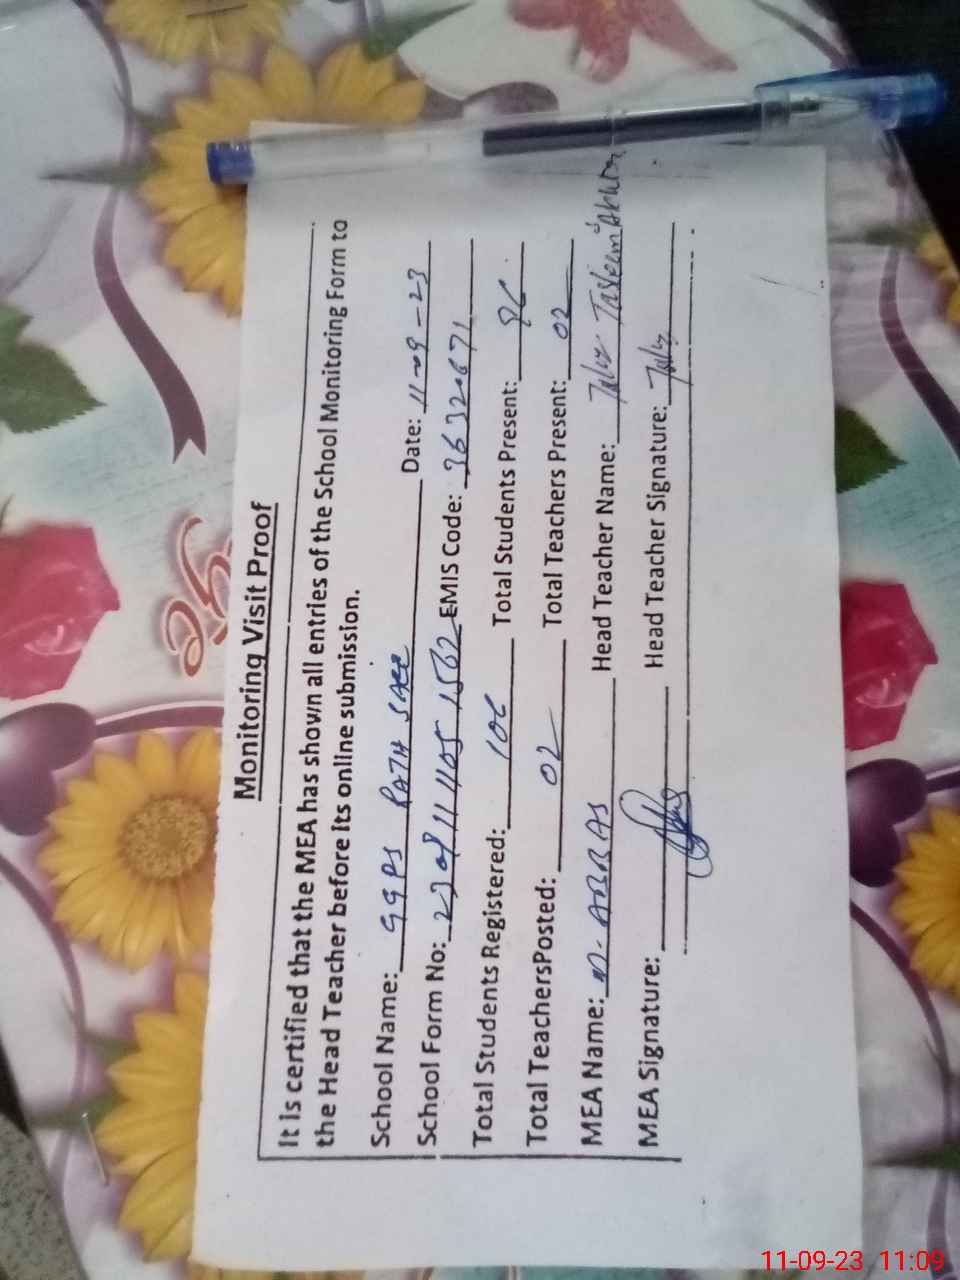 Monitoring Visit Proof
It is certified that the MEA has shown all entries of the School Monitoring Form to
the Head Teacher before its online submission.
School Name: GGPS RATH SAEE Date: 11-09-23
School Form No: EMIS Code:
Total Students Registered: Total Students Present:
Total TeachersPosted: 02 Total Teachers Present: 02
MEA Name: M. ABBAS Head Teacher Name: Tasleem Akhtar
MEA Signature: Head Teacher Signature:
11-09-23 11:09